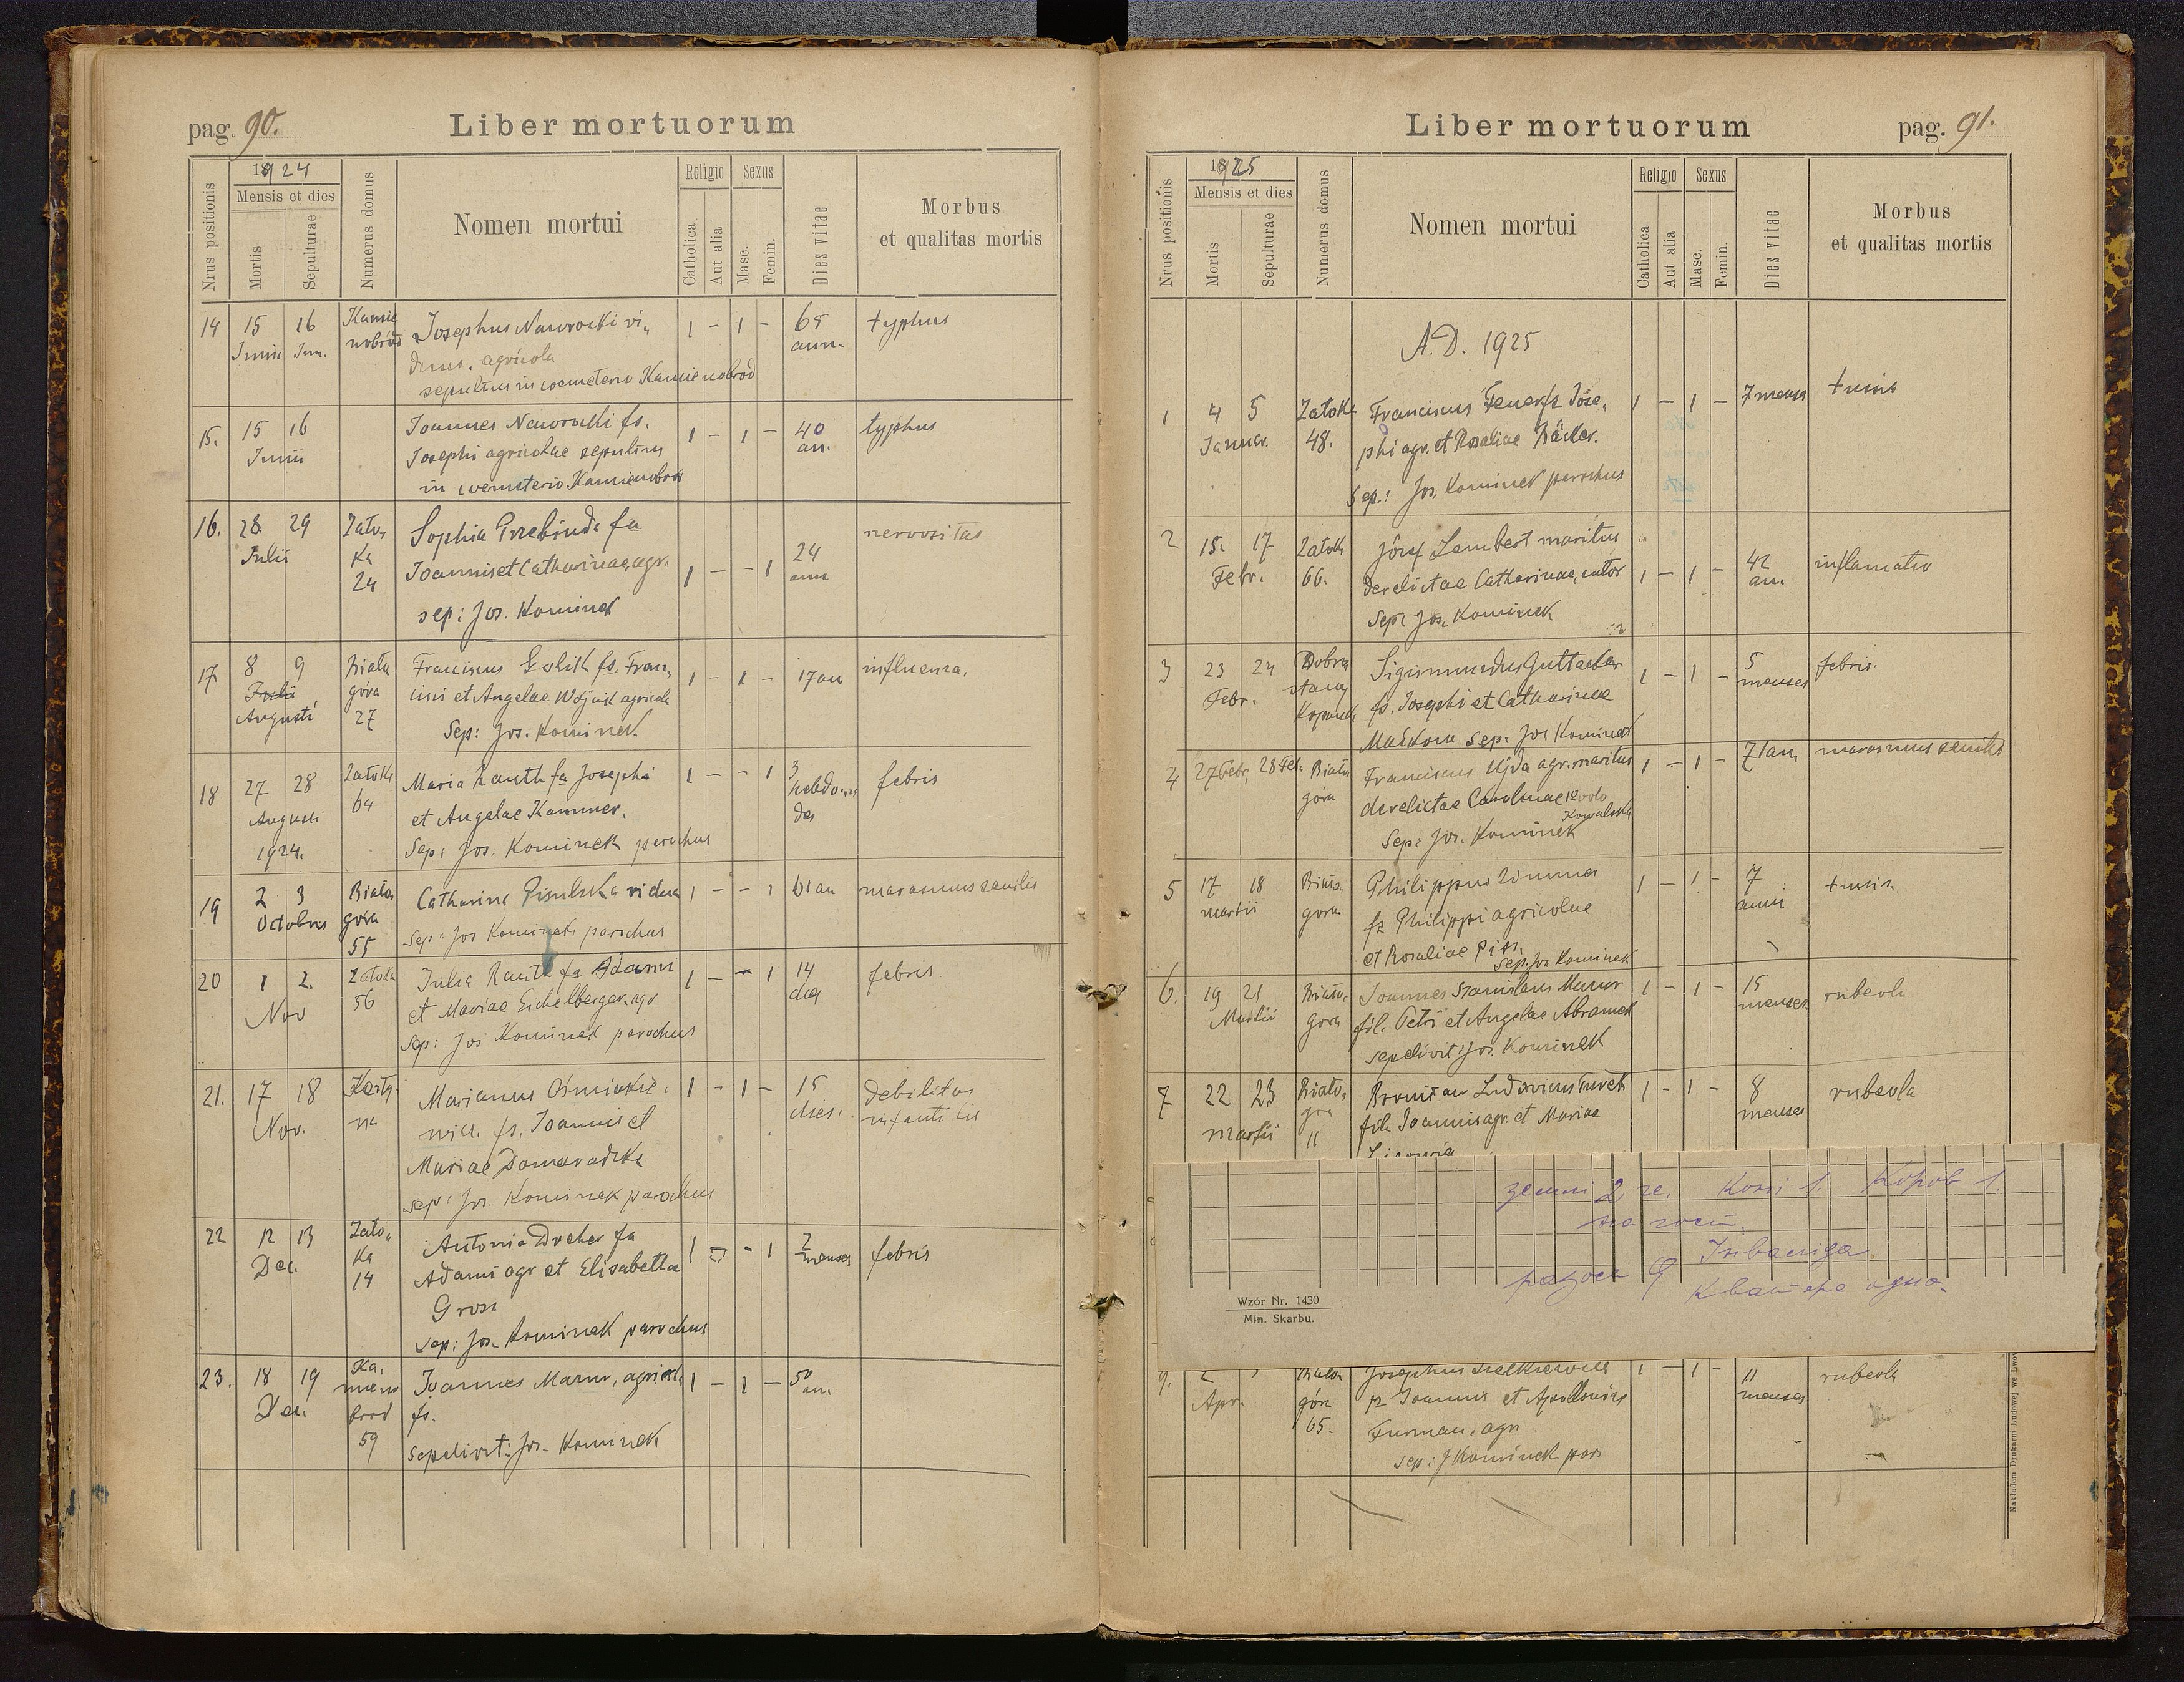 pag. 90.
Liber mortuorum
1924
Mensis et dies
Nrus positionis
Mortis
Sepulturae
Numerus domus
Nomen mortui
Religio
Catholica
Aut alia
Sexus
Masc.
Femin.
Dies vitae
Morbus
et qualitas mortis
14 15 16 Kamie Josephus Nawrocki vi„ 1 – 1 – 65 typhus
Junii Jun. nobród duus. agricola ann.
sepultus in coemeterio Kamienobrod
15. 15 16 Joannes Nawrocki fs. 1 – 1 – 40 typhus
Junii Josephi agricolae sepultus an.
in coemeterio Kamienobrod
16. 28 29 Zato, Sophia Grzebinda fa nervositas
Julii ka Joannis et Catharinae, agr. 1 – – 1 24
24 sep: Jos. Kominek ann
17 8 9 Biała Franciscus Golik fs. Fran, 1 – 1 – 17 an influenza,
Julii góra cisci et Angelae Wójcik agricola
Augusti 27 Sep: Jos. Kominek.
18 27 28 Zatoka Maria Rauth fa Josephi 1 – – 1 3 febris
Augusti 64 et Angelae Kammer. hebdoma
1924. Sep: Jos. Kominek parochus das
19 2 3 Biała Catharina vidua 1 – – 1 61 an marasmus senilis
Octobris góra Sep: Jos Kominek parochus
55
20 1 2. Zatoka Julia Rauth fa Adami 1 – – 1 14 febris.
Nov 56 et Mariae Eichelberger. agr dies
Sep: Jos Kominek parochus
21. 17 18 Marianus Ośmiakie, 1 – 1 – 15 debilitas
Nov. na wicz. fs. Joannis et dies. infantilis
Mariae Domaradzka
sep: Jos. Kominek parochus
22 12 13 Zato, Antonia Dreher fa 1 – – 1 2 febris
Dec. ka Adami agr et Elisabetta menses
14 Gross
sep: Jos. Kominek parochus
23. 18 19 Ka, Joannes Mazur, agricola 1 – 1 – 50
Dec. mieno fs. an.
brod sepelivit: Jos. Kominek
59
Liber mortuorum
pag. 91.
1925
Mensis et dies
Nrus positionis
Mortis
Sepulturae
Numerus domus
Nomen mortui
Religio
Catholica
Aut alia
Sexus
Masc.
Femin.
Dies vitae
Morbus
et qualitas mortis
A.D. 1925
1 4 5 Zatoka Franciscus Feuer fs Jose, 1 – 1 – 7 menses tussis
Januar. 48. phi agr. et Rosaliae Bäcker.
Sep.: Jos. Kominek parochus
2 15. 17 Zatoka Józef Lambert maritus 42 inflamatio
Febr. 66. derelictae Catharinae, sutor 1 – 1 – ann
Sep: Jos. Kominek
3 23 24 Dobro Sigismundus Guttacker 1 – 1 – 5 febris.
Febr. stany fs. Josephi et Catharinae menses
sep: Jos Kominek
4 27 Febr. 28 Feb. Biała Franciscus Ujda agr. maritus 1 – 1 – 71 an marasmus senilis
góra derelictae Carolinae
Kowalska
Sep: Jos. Kominek
5 17 18 Biała Philippus Zimma 1 – 1 – 7 tussis
martii gora fs Philippi agricolae anni
et Rosaliae
Sep. Jos Kominek
6. 19 21 Biała, Joannes Stanislaus Mazur 1 – 1 – 15 rubeola
Martii gora fil. Petri et Angelae Abramek menses
sepelivit: Jos. Kominek
7 22 23 Biało, Bronisław Ludovicus Turek 1 – 1 – 8 rubeola
martii gra fil. Joannis agr. et Mariae menses
11
земни 2 Копів 1.
Wzór Nr. 1430
Min. Skarbu.
9. Biała Josephus 1 – 1 – 11 rubeola
Apr. góra fs Joannis et Apolloniae menses
65. Furman, agr
sep: J Kominek par.
Nakładem Drukarni Ludowej we Lwow